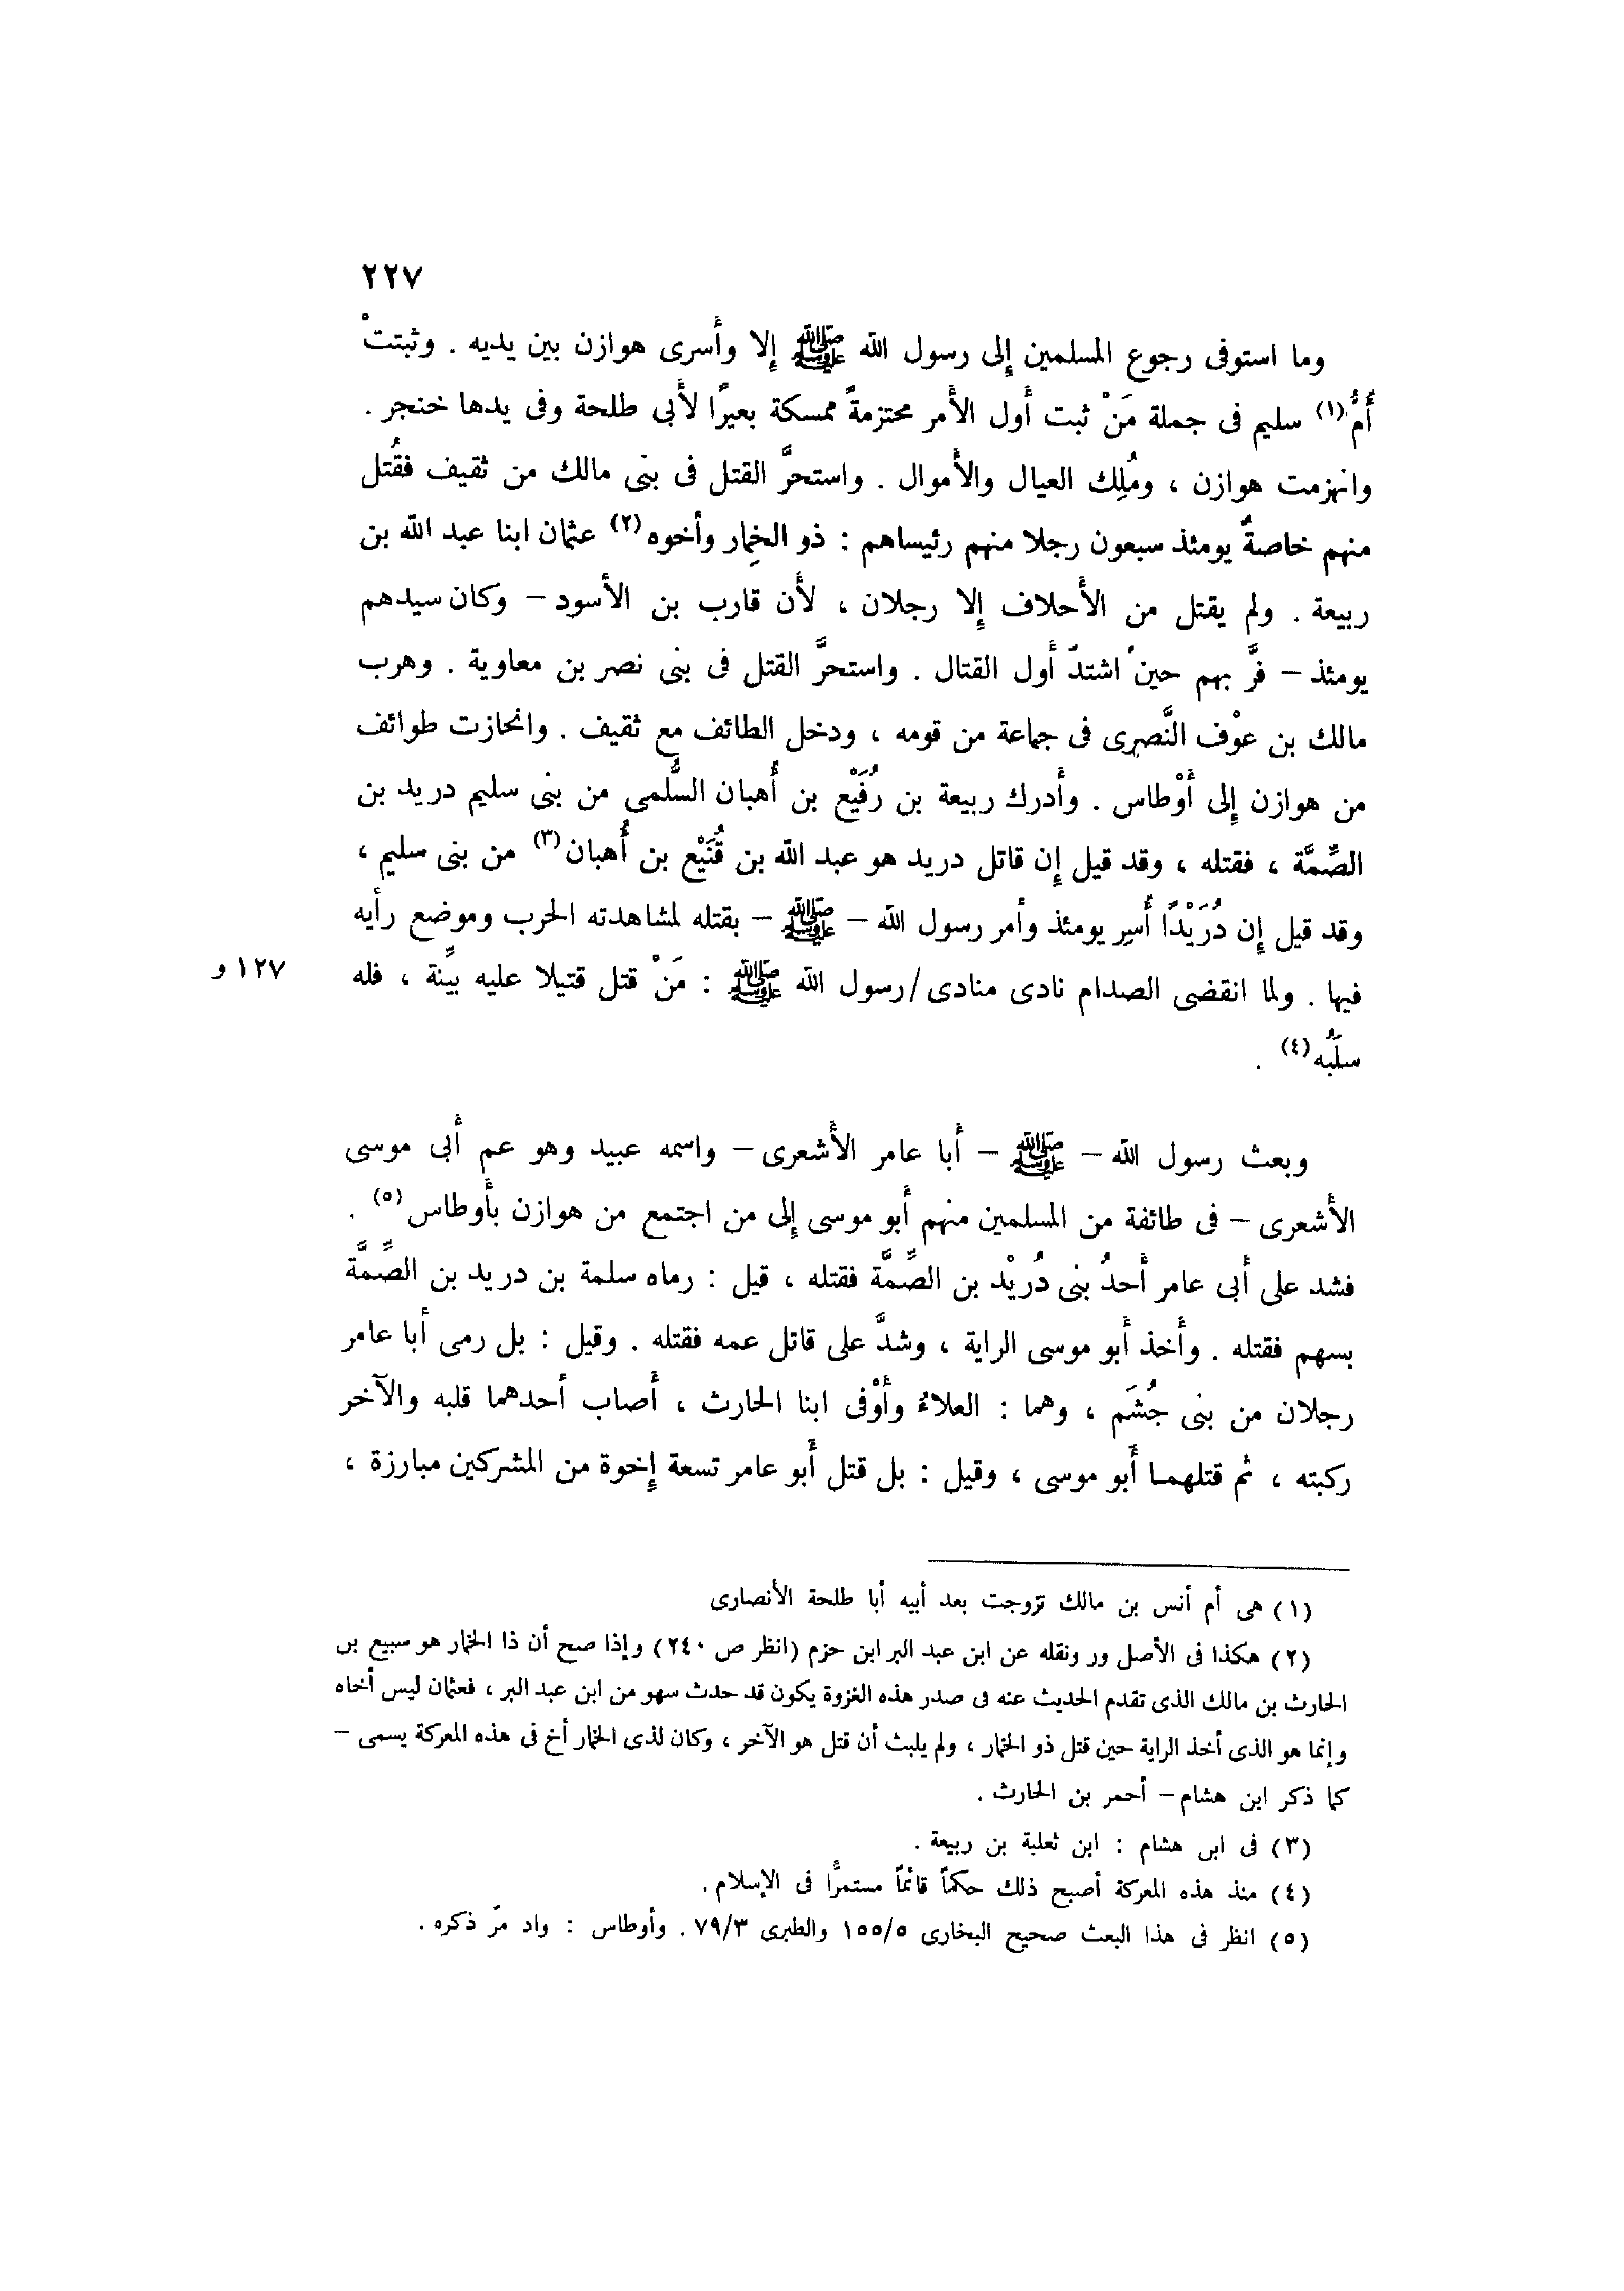 ٢٢٧
وما استوفى رجوع المسلمين إلى رسول الله ﷺ إلا وأسرى هوازن بين يديه . وثبتتْ
أُمُّ(١) سليم فى جملة مَنْ ثبت أول الأمر محتزمةً ممسكة بعيرًا لأبى طلحة وفى يدها خنجر .
وانهزمت هوازن ، ومُلِك العيال والأموال . واستحرَّ القتل فى بنى مالك من ثقيف فقُتل
منهم خاصةً يومئذ سبعون رجلا منهم رئيساهم : ذو الخِمار وأخوه(٢) عثمان ابنا عبد الله بن
ربيعة . ولم يقتل من الأحلاف إلا رجلان ، لأن قارب بن الأسود – وكان سيدهم
يومئذ – فرَّ بهم حين اشتدّ أول القتال . واستحرَّ القتل فى بنى نصر بن معاوية . وهرب
مالك بن عوْف النَّصرى فى جماعة من قومه ، ودخل الطائف مع ثقيف . وانحازت طوائف
من هوازن إلى أَوْطاس . وأدرك ربيعة بن رُفَيْع بن أُهبان السُّلمى من بنى سليم دريد بن
الصِّمَّة ، فقتله ، وقد قيل إن قاتل دريد هو عبد الله بن قُنَيْع بن أُهبان(٣) من بنى سليم ،
وقد قيل إن دُرَيْدًا أُسِر يومئذ وأمر رسول الله – ﷺ – بقتله لمشاهدته الحرب وموضع رأيه
فيها . ولما انقضى الصدام نادى منادى/رسول الله ﷺ : مَنْ قتل قتيلا عليه بيِّنة ، فله
١٢٧ و
سلَبُه(٤) .
وبعث رسول الله – ﷺ – أبا عامر الأشعرى – واسمه عبيد وهو عم أبى موسى
الأشعرى – فى طائفة من المسلمين منهم أبو موسى إلى من اجتمع من هوازن بأوطاس(٥) .
فشد على أبى عامر أحدُ بنى دُريْد بن الصِّمَّة فقتله ، قيل : رماه سلمة بن دريد بن الصِّمَّة
بسهم فقتله . وأخذ أبو موسى الراية ، وشدَّ على قاتل عمه فقتله . وقيل : بل رمى أبا عامر
رجلان من بنى جُشَم ، وهما : العلاءُ وأَوْفى ابنا الحارث ، أصاب أحدهما قلبه والآخر
ركبته ، ثم قتلهما أبو موسى ، وقيل : بل قتل أبو عامر تسعة إخوة من المشركين مبارزة ،
(١) هى أم أنس بن مالك تزوجت بعد أبيه أبا طلحة الأنصارى
(٢) هكذا فى الأصل ور ونقله عن ابن عبد البر ابن حزم (انظر ص ٢٤٠) وإذا صح أن ذا الخمار هو سبيع بن
الحارث بن مالك الذى تقدم الحديث عنه فى صدر هذه الغزوة يكون قد حدث سهو من ابن عبد البر ، فعثمان ليس أخاه
وإنما هو الذى أخذ الراية حين قتل ذو الخمار ، ولم يلبث أن قتل هو الآخر ، وكان لذى الخمار أخ فى هذه المعركة يسمى –
كما ذكر ابن هشام – أحمر بن الحارث .
(٣) فى ابن هشام : ابن ثعلبة بن ربيعة .
(٤) منذ هذه المعركة أصبح ذلك حكماً قائماً مستمرًّا فى الإسلام .
(٥) انظر فى هذا البعث صحيح البخارى ١٥٥/٥ والطبرى ٧٩/٣ . وأوطاس : واد مرّ ذكره .